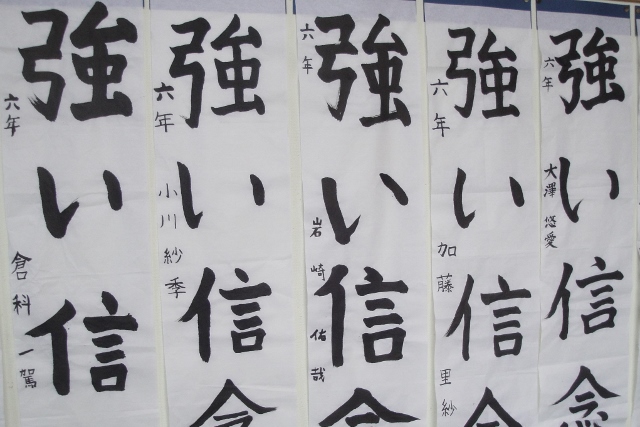 強い信念
六年 大澤 悠愛
強い信
六年 加藤 里紗
強い信
六年 岩崎 佑哉
強い信
六年 小川 紗季
強い信
六年 倉科 一駕